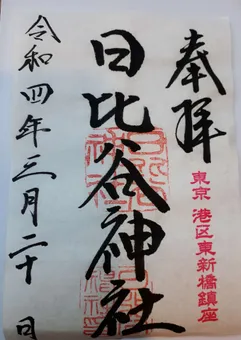 奉拝
東京 港区東新橋鎮座
日比谷神社
令和四年三月二十日